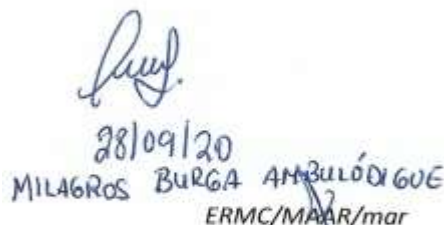 28/09/20
MILAGROS BURGA AMBULÓDIGUE
ERMC/MAAR/mar